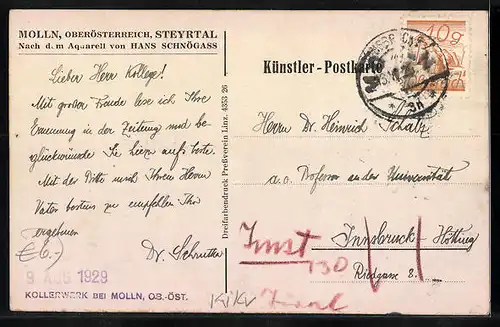 MOLLN, OBERÖSTERREICH, STEYRTAL
Nach d. m Aquarell von HANS SCHNÖGASS
Lieber Herr Kollege!
Mit großer Freude lese ich Ihre
Ernennung in der Zeitung und be-
glückwünsche Sie hiezu aufs beste.
Mit der Bitte mich Ihrem Herrn
Vater bestens zu empfehlen Ihr
ergebener
Dr. Schrutka
€6.-)
9 AUG 1929
KOLLERWERK BEI MOLLN, OB.-ÖST.
Dreifarbendruck Preßverein Linz. 4353 26
Künstler-Postkarte
10g
Herrn Dr. Heinrich Schatz
a.o. Professor an der Universität
Innsbruck-Hötting
Riedgasse 8.
Imst
130
Tirol
KiKV